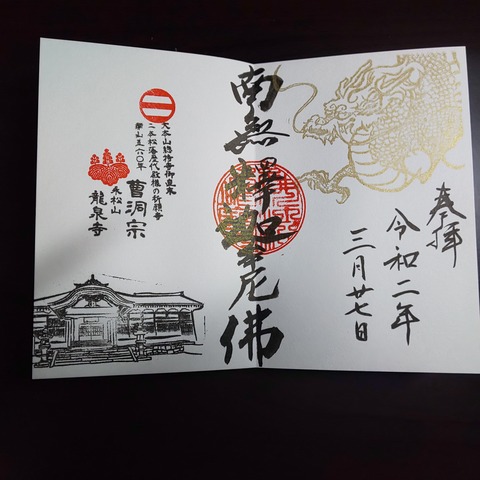 奉拝
令和二年
三月廿七日
南無釋迦牟尼佛
大本山總持寺御直末
二本松藩歴代殿様の祈願寺
開山五六〇年
曹洞宗
永松山
龍泉寺